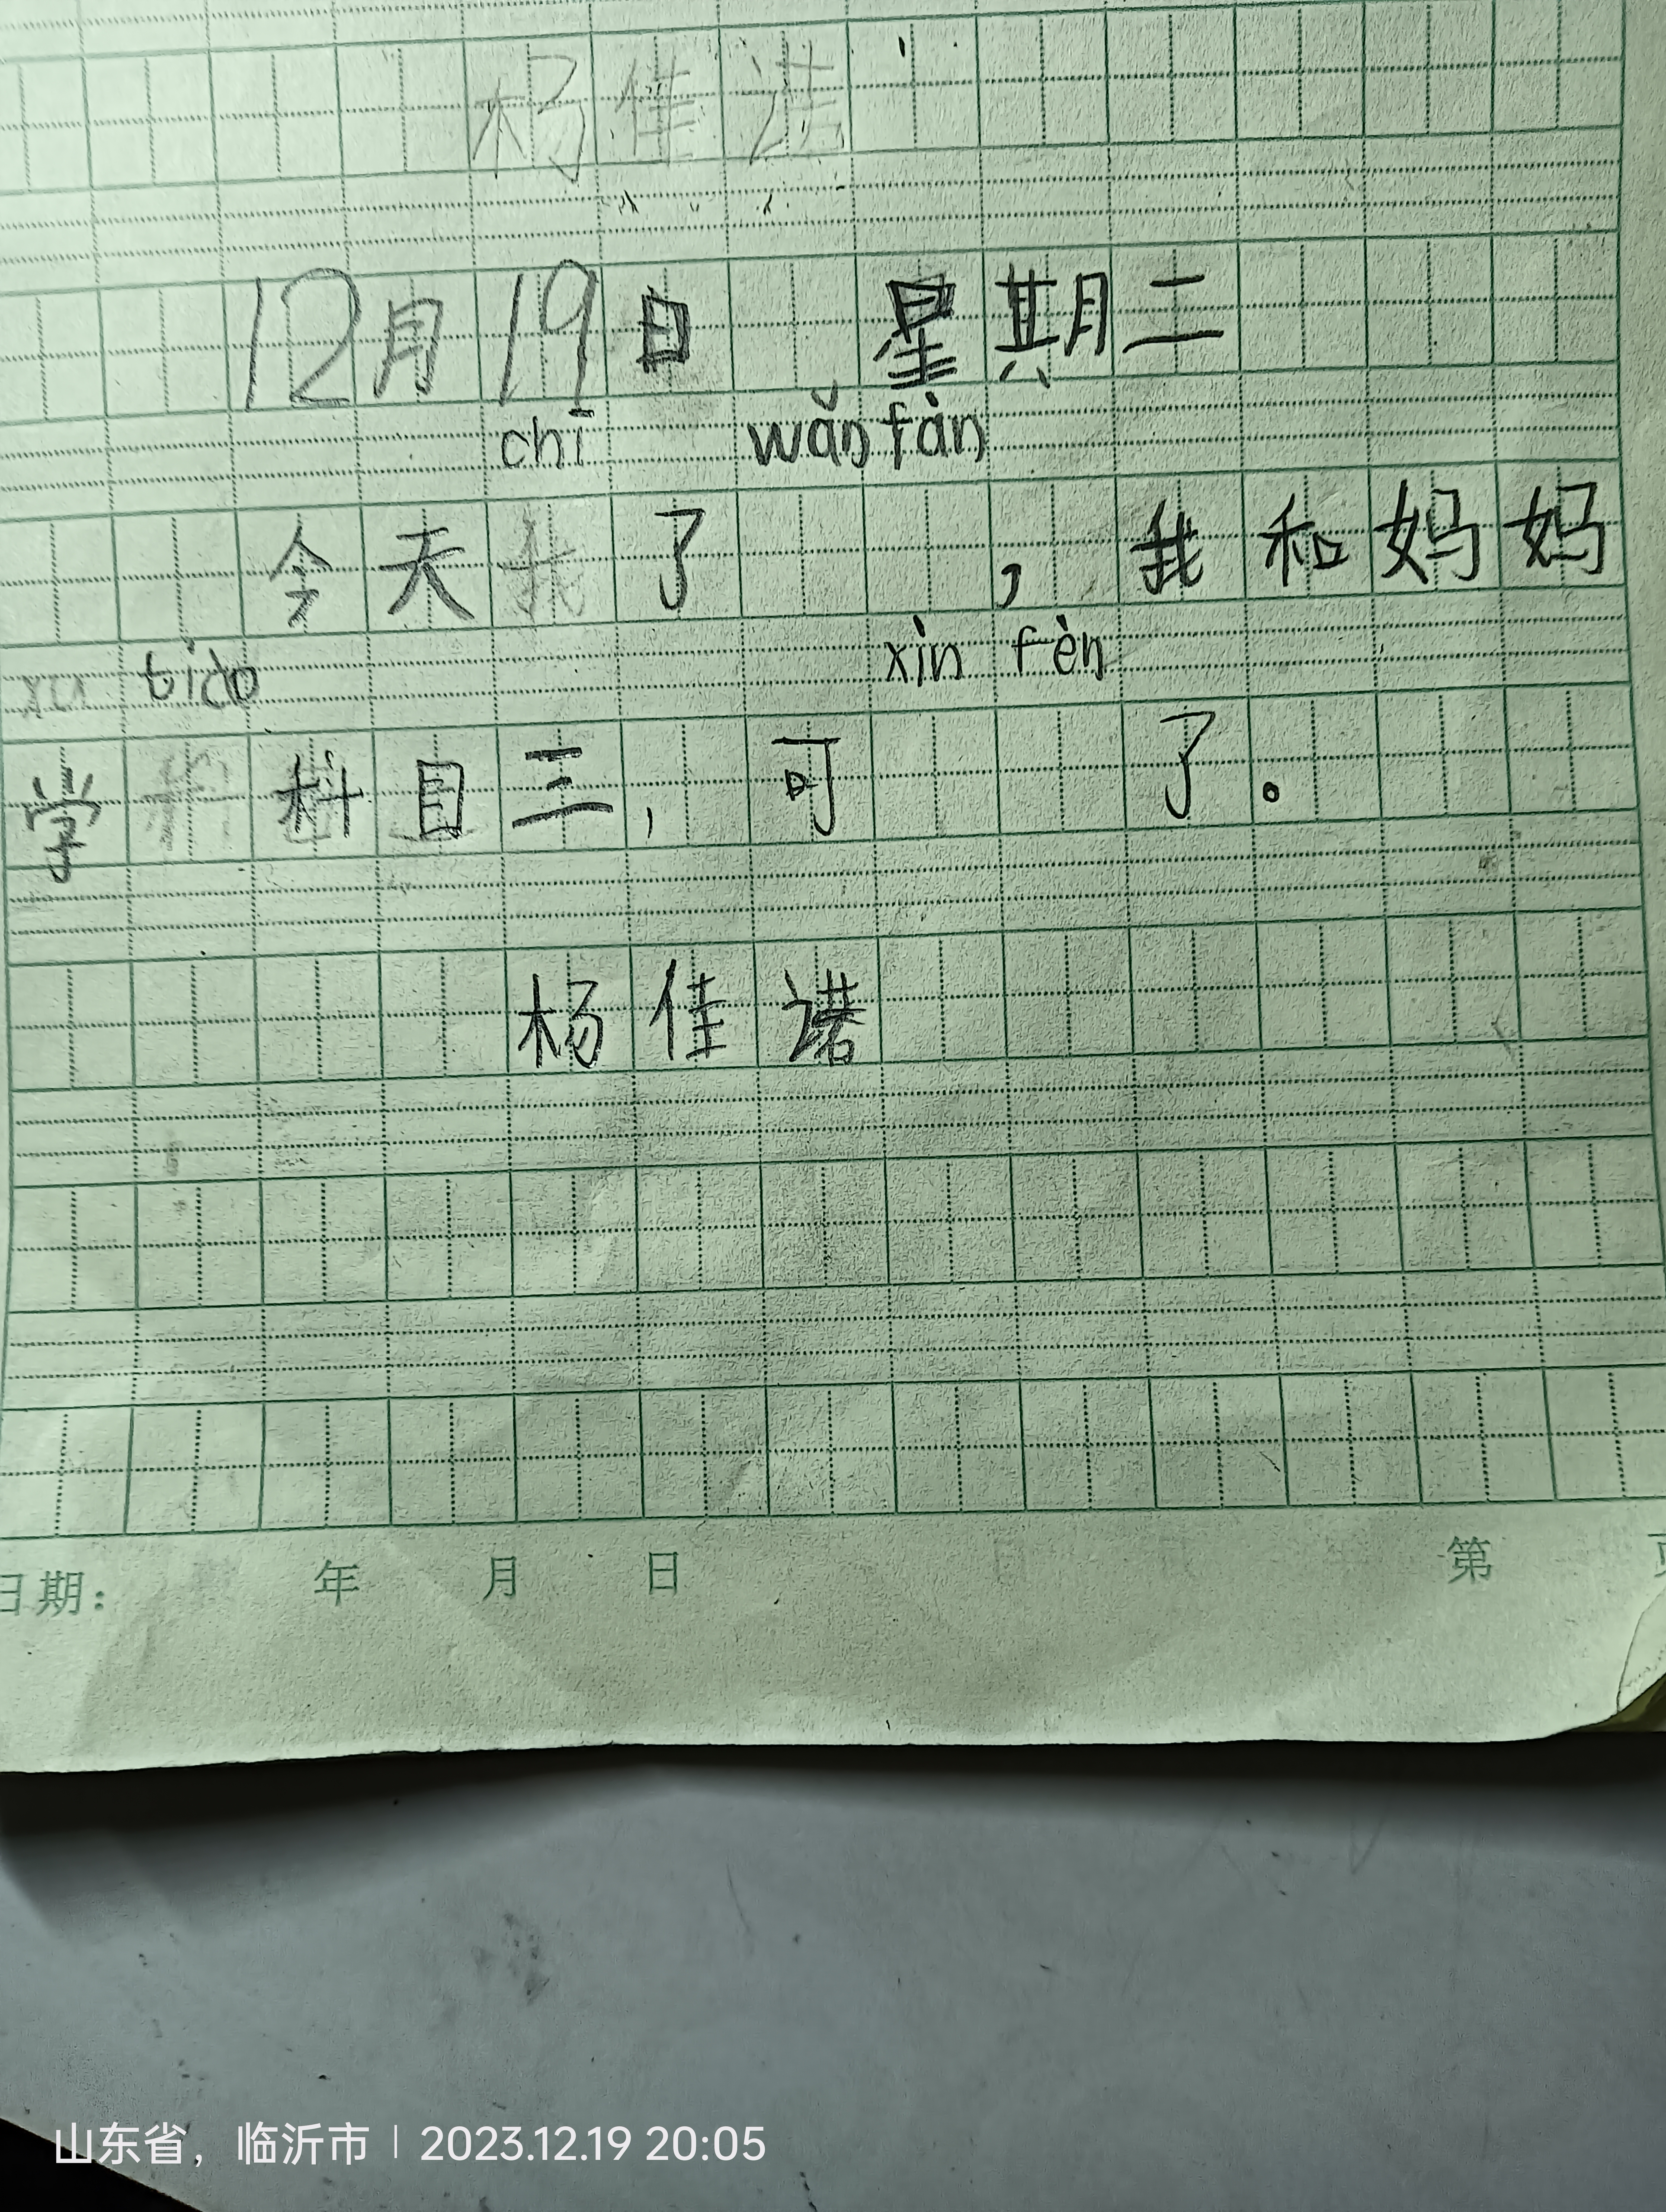 杨佳诺
12月19日 星期二
chī wǎn fàn
今天 了 ,我和妈妈
tiào xìn fèn
学 科目三,可 了。
杨佳诺
日期: 年 月 日 第 页
山东省,临沂市 | 2023.12.19 20:05